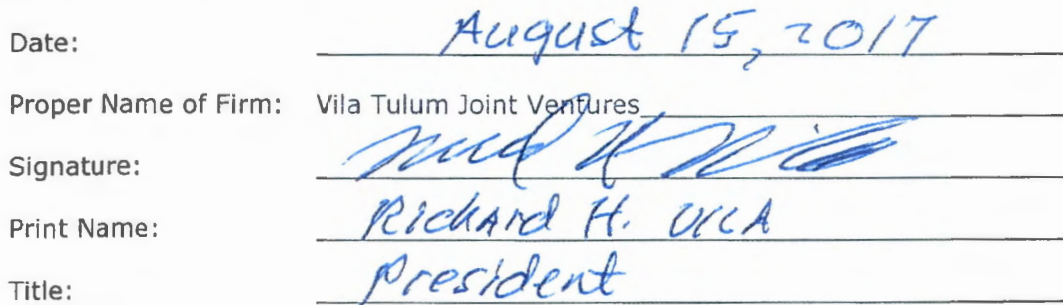 Date: August 15, 2017
Proper Name of Firm: Vila Tulum Joint Ventures
Signature:
Print Name: Richard H. VILA
Title: President